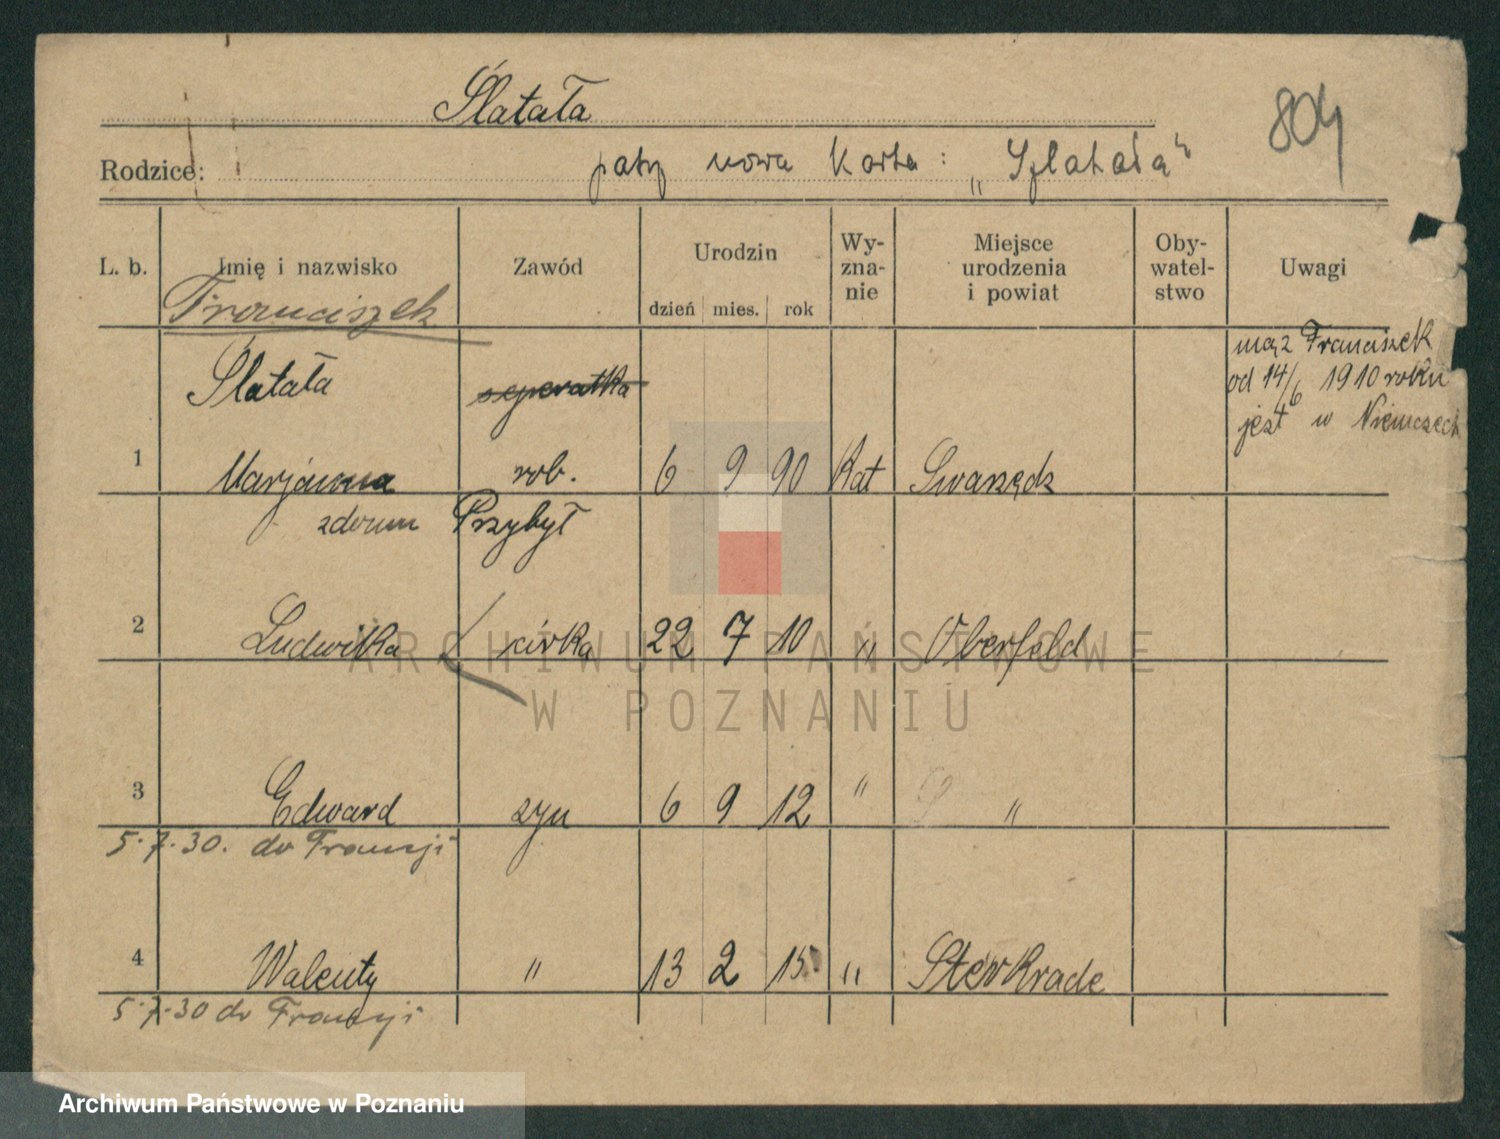 Ślatała
804
Rodzice: patrz nowa karta: „Szlatała"
L. b. Imię i nazwisko Zawód Urodzin dzień mies. rok Wy-zna-nie Miejsce urodzenia i powiat Oby-watel-stwo Uwagi
Franciszek
mąż Franciszek
od 14/6 1910 roku
jest w Niemczech
Ślatała seperatka
1 Marjanna rob. 6 9 90 Kat Swarzędz
zdomu Przybył
2 Ludwika córka 22 7 10 " Oberfeld
3 Edward syn 6 9 12 " "
5.7.30. do Francji
4 Walenty " 13 2 15 " Sterkrade
5.7.30 do Francji
ARCHIWUM PAŃSTWOWE
W POZNANIU
Archiwum Państwowe w Poznaniu